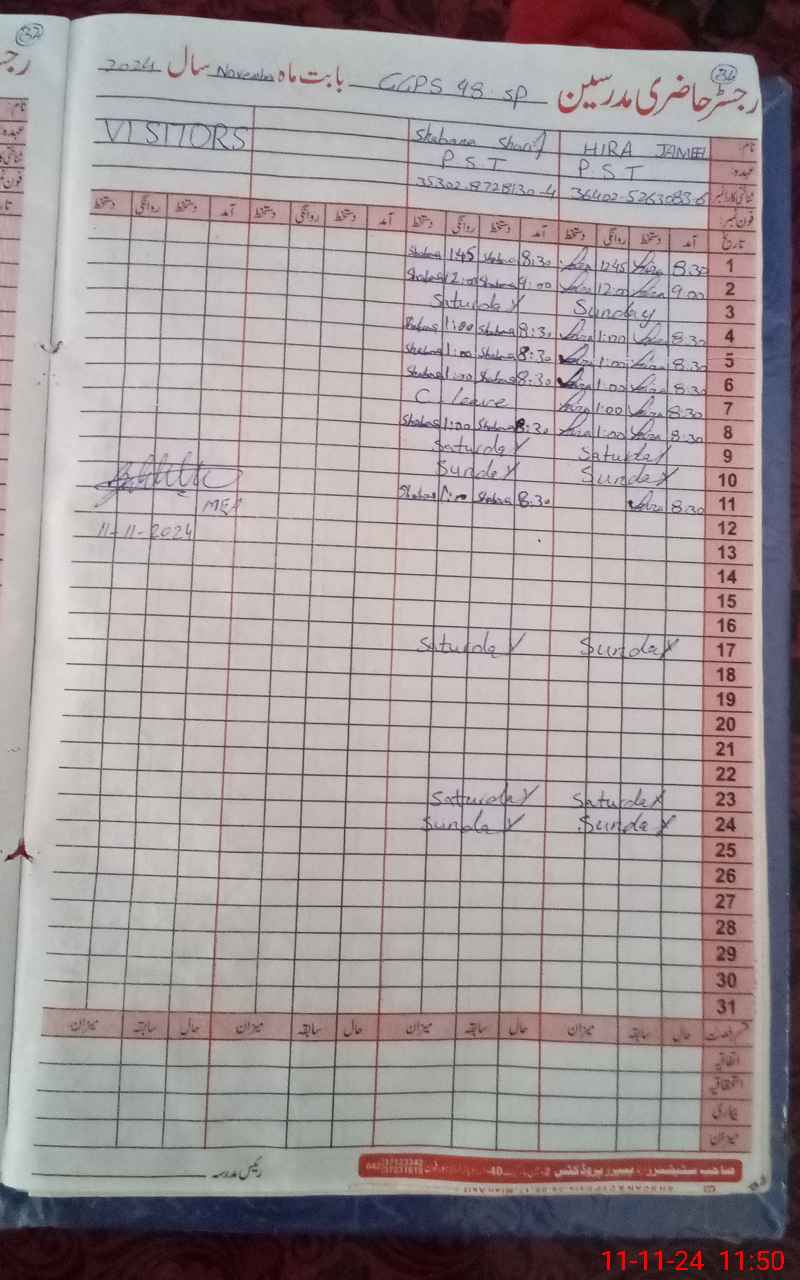 32
32
رجسٹر حاضری مدرسین GGPS 98 SP بابت ماہ November سال 2024
نام: HIRA JAMEEL Shabana Sharif VISITORS
عہدہ: P.S.T P.S.T
شناختی کارڈ نمبر 36402-5263083-6 35302-8728130-4
فون نمبر:
تاریخ آمد دستخط روانگی دستخط آمد دستخط روانگی دستخط آمد دستخط روانگی دستخط آمد دستخط روانگی دستخط
1 8:30 Hira 12:45 Hira 8:30 Shabana 1:45 Shabana
2 9:00 Hira 12:00 Hira 9:00 Shabana 12:00 Shabana
3 Sunday Saturday
4 8:30 Hira 1:00 Hira 8:30 Shabana 1:00 Shabana
5 8:30 Hira 1:00 Hira 8:30 Shabana 1:00 Shabana
6 8:30 Hira 1:00 Hira 8:30 Shabana 1:00 Shabana
7 8:30 Hira 1:00 Hira C leave
8 8:30 Hira 1:00 Hira 8:30 Shabana 1:00 Shabana
9 Saturday Saturday
10 Sunday Sunday
11 8:30 Hira 8:30 Shabana 1:00 Shabana MEA
12 11-11-2024
13
14
15
16
17 Sunday Saturday
18
19
20
21
22
23 Saturday Saturday
24 Sunday Sunday
25
26
27
28
29
30
31
قسم رخصت حال سابقہ میزان حال سابقہ میزان حال سابقہ میزان حال سابقہ میزان
اتفاقیہ
استحقاقیہ
بیماری
میزان
رئیس مدرسہ
صاحب سٹیشنرز پیپر پروڈکٹس
11-11-24 11:50